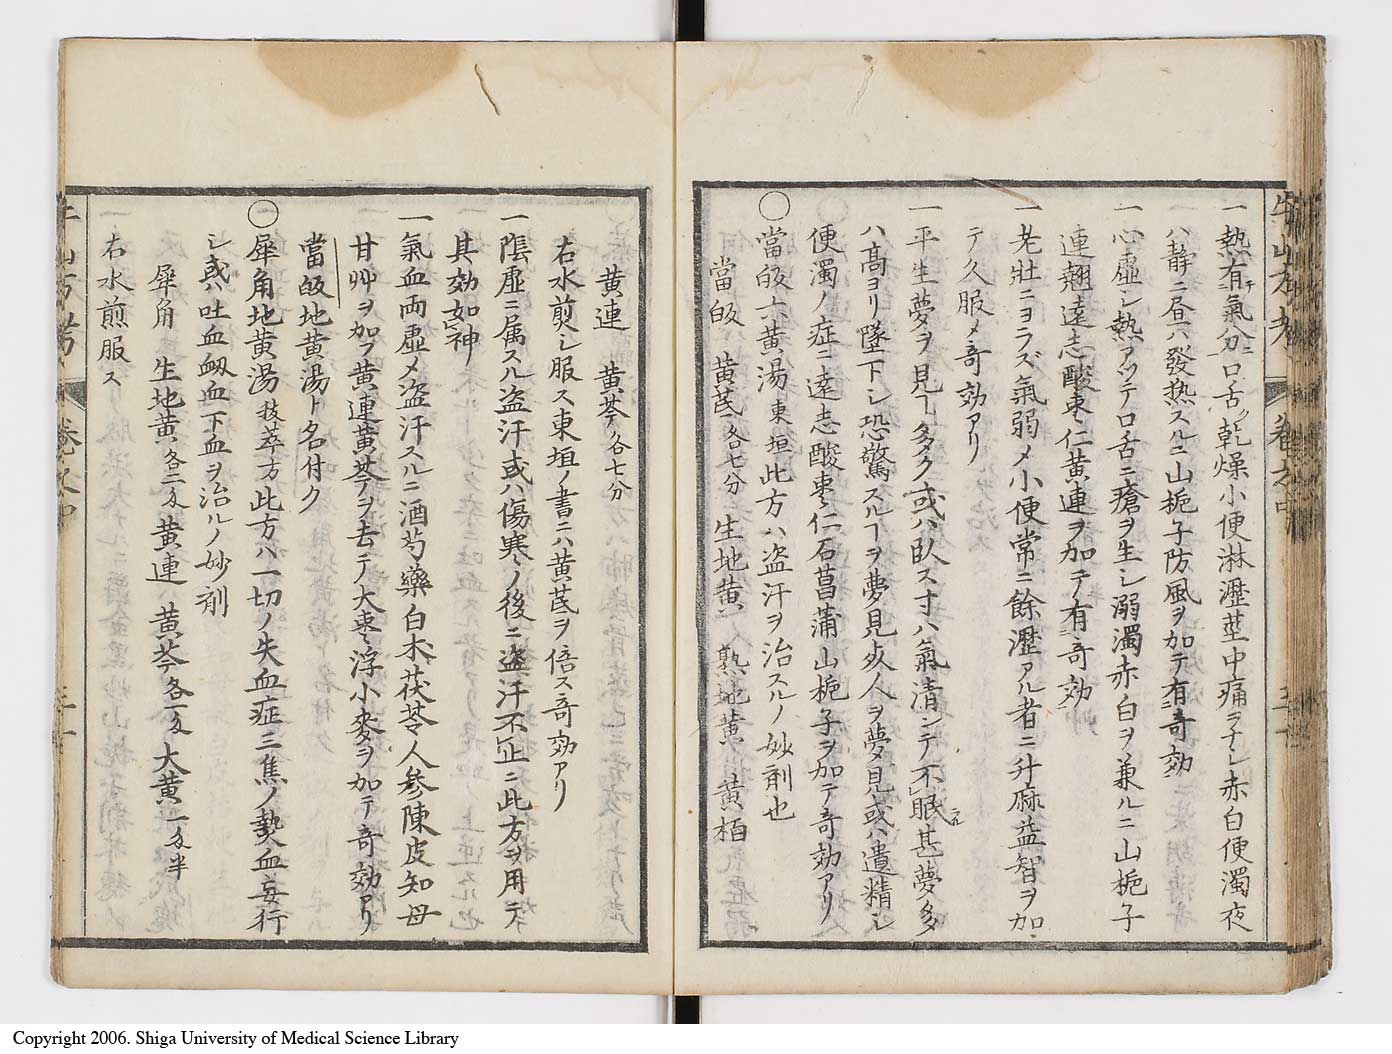 一熱有テ氣分ニ口舌乾燥小便淋瀝莖中痛ヲナシ赤白便濁夜
ハ静ニ昼ハ發热スルニ山梔子防風ヲ加テ有竒効
一心虚シ熱アツテ口舌ニ瘡ヲ生シ溺濁赤白ヲ兼ルニ山梔子
連翹遠志酸棗仁黄連ヲ加テ有竒効
一老壯ニヨラズ氣弱メ小便常ニ餘瀝アル者ニ升麻益智ヲ加
テ久服メ竒効アリ
一平生夢ヲ見ヿ多ク或ハ臥ス寸ハ氣清シテ不眠甚夢多
ハ髙ヨリ墜下シ恐驚スルヿヲ夢見女人ヲ夢見或ハ遺精シ
便濁ノ症ニ遠志酸棗仁石菖蒲山梔子ヲ加テ竒効アリ
〇當皈六黄湯東垣此方ハ盗汗ヲ治スルノ妙剤也
當皈 黄芪各七分 生地黄 熟地黄 黄栢
黄連 黄芩各七分
右水煎シ服ス東垣ノ書ニハ黄芪ヲ倍ス竒効アリ
一陰虚ニ属スル盗汗或ハ傷寒ノ後ニ盗汗不止ニ此方ヲ用テ
其効如神
一氣血両虚メ盗汗スルニ酒芍藥白朮茯苓人参陳皮知母
甘艸ヲ加ブ黄連黄芩ヲ去テ大棗浮小麥ヲ加テ竒効アリ
當皈地黄湯ト名付ク
〇犀角地黄湯拔萃方此方ハ一切ノ失血症三焦ノ熱血妄行
シ或ハ吐血衂血下血ヲ治ルノ妙剤
犀角 生地黄各二戔 黄連 黄芩各一戔 大黄一戔半
右水煎服ス
牛山方考 卷之中